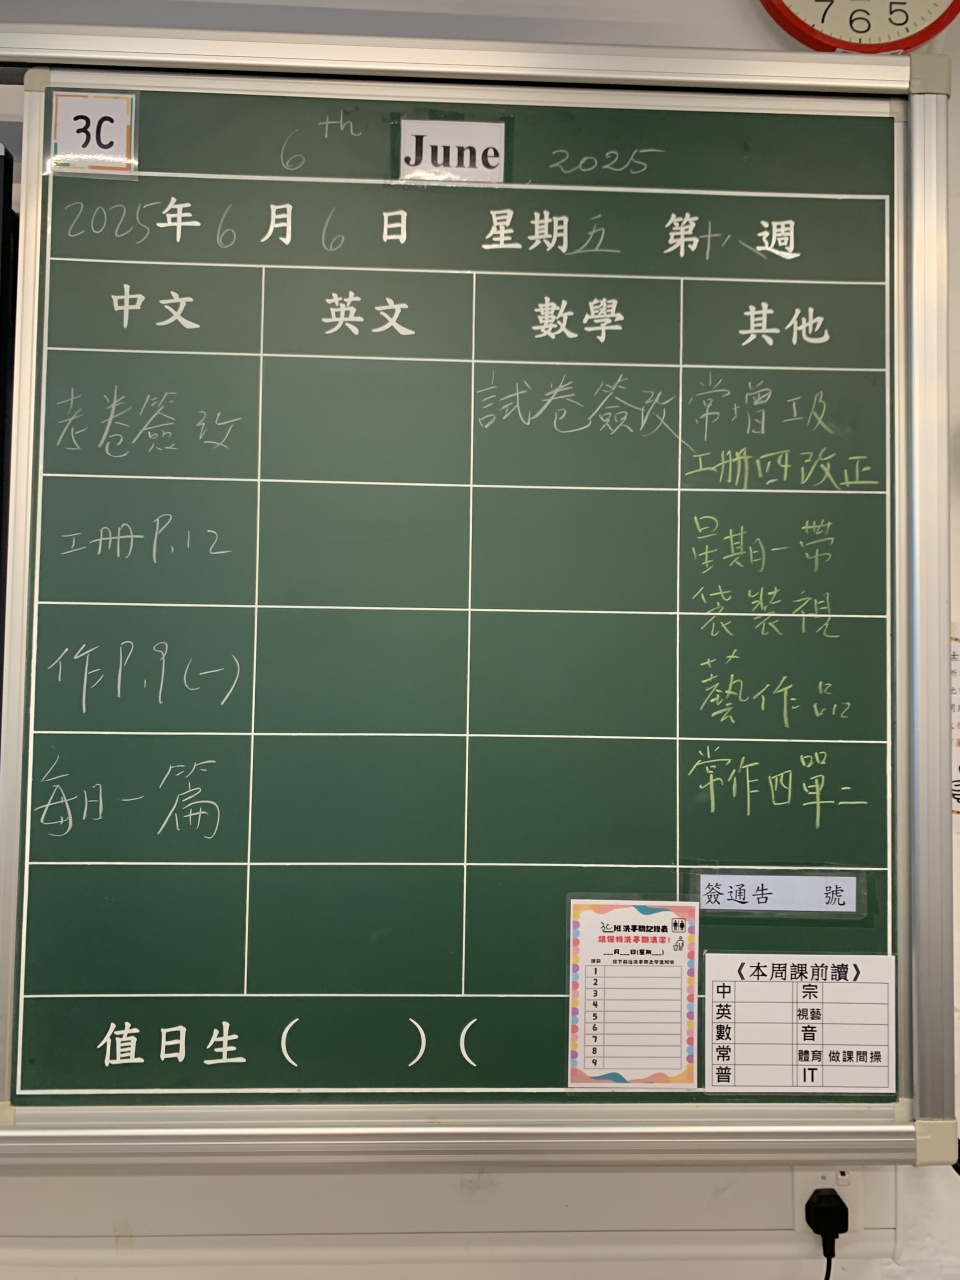 7 6 5
3C
6th June, 2025
2025年6月6日 星期五 第十八週
中文 英文 數學 其他
考卷簽改
工册P.12
作P.9(一)
每日一篇
試卷簽改
常增工及
工册四改正
星期一帶
袋裝視
藝作品
常作四單二
簽通告 號
3C班洗手間記錄表
請保持洗手間清潔!
___月___日(星期___)
1
2
3
4
5
6
7
8
9
《本周課前讀》
中 宗
英 視藝
數 音
常 體育 做課間操
普 IT
值日生( )(